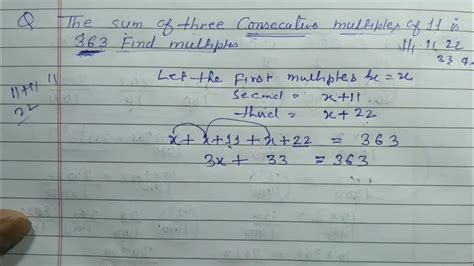 Q The sum of three Consecutive multiples of 11 is
363 Find multiples
11, 11, 22
33
11+11 11
22
Let the First multiples be = x
Second = x+11
third = x+22
x + x+11 + x+22 = 363
3x + 33 = 363